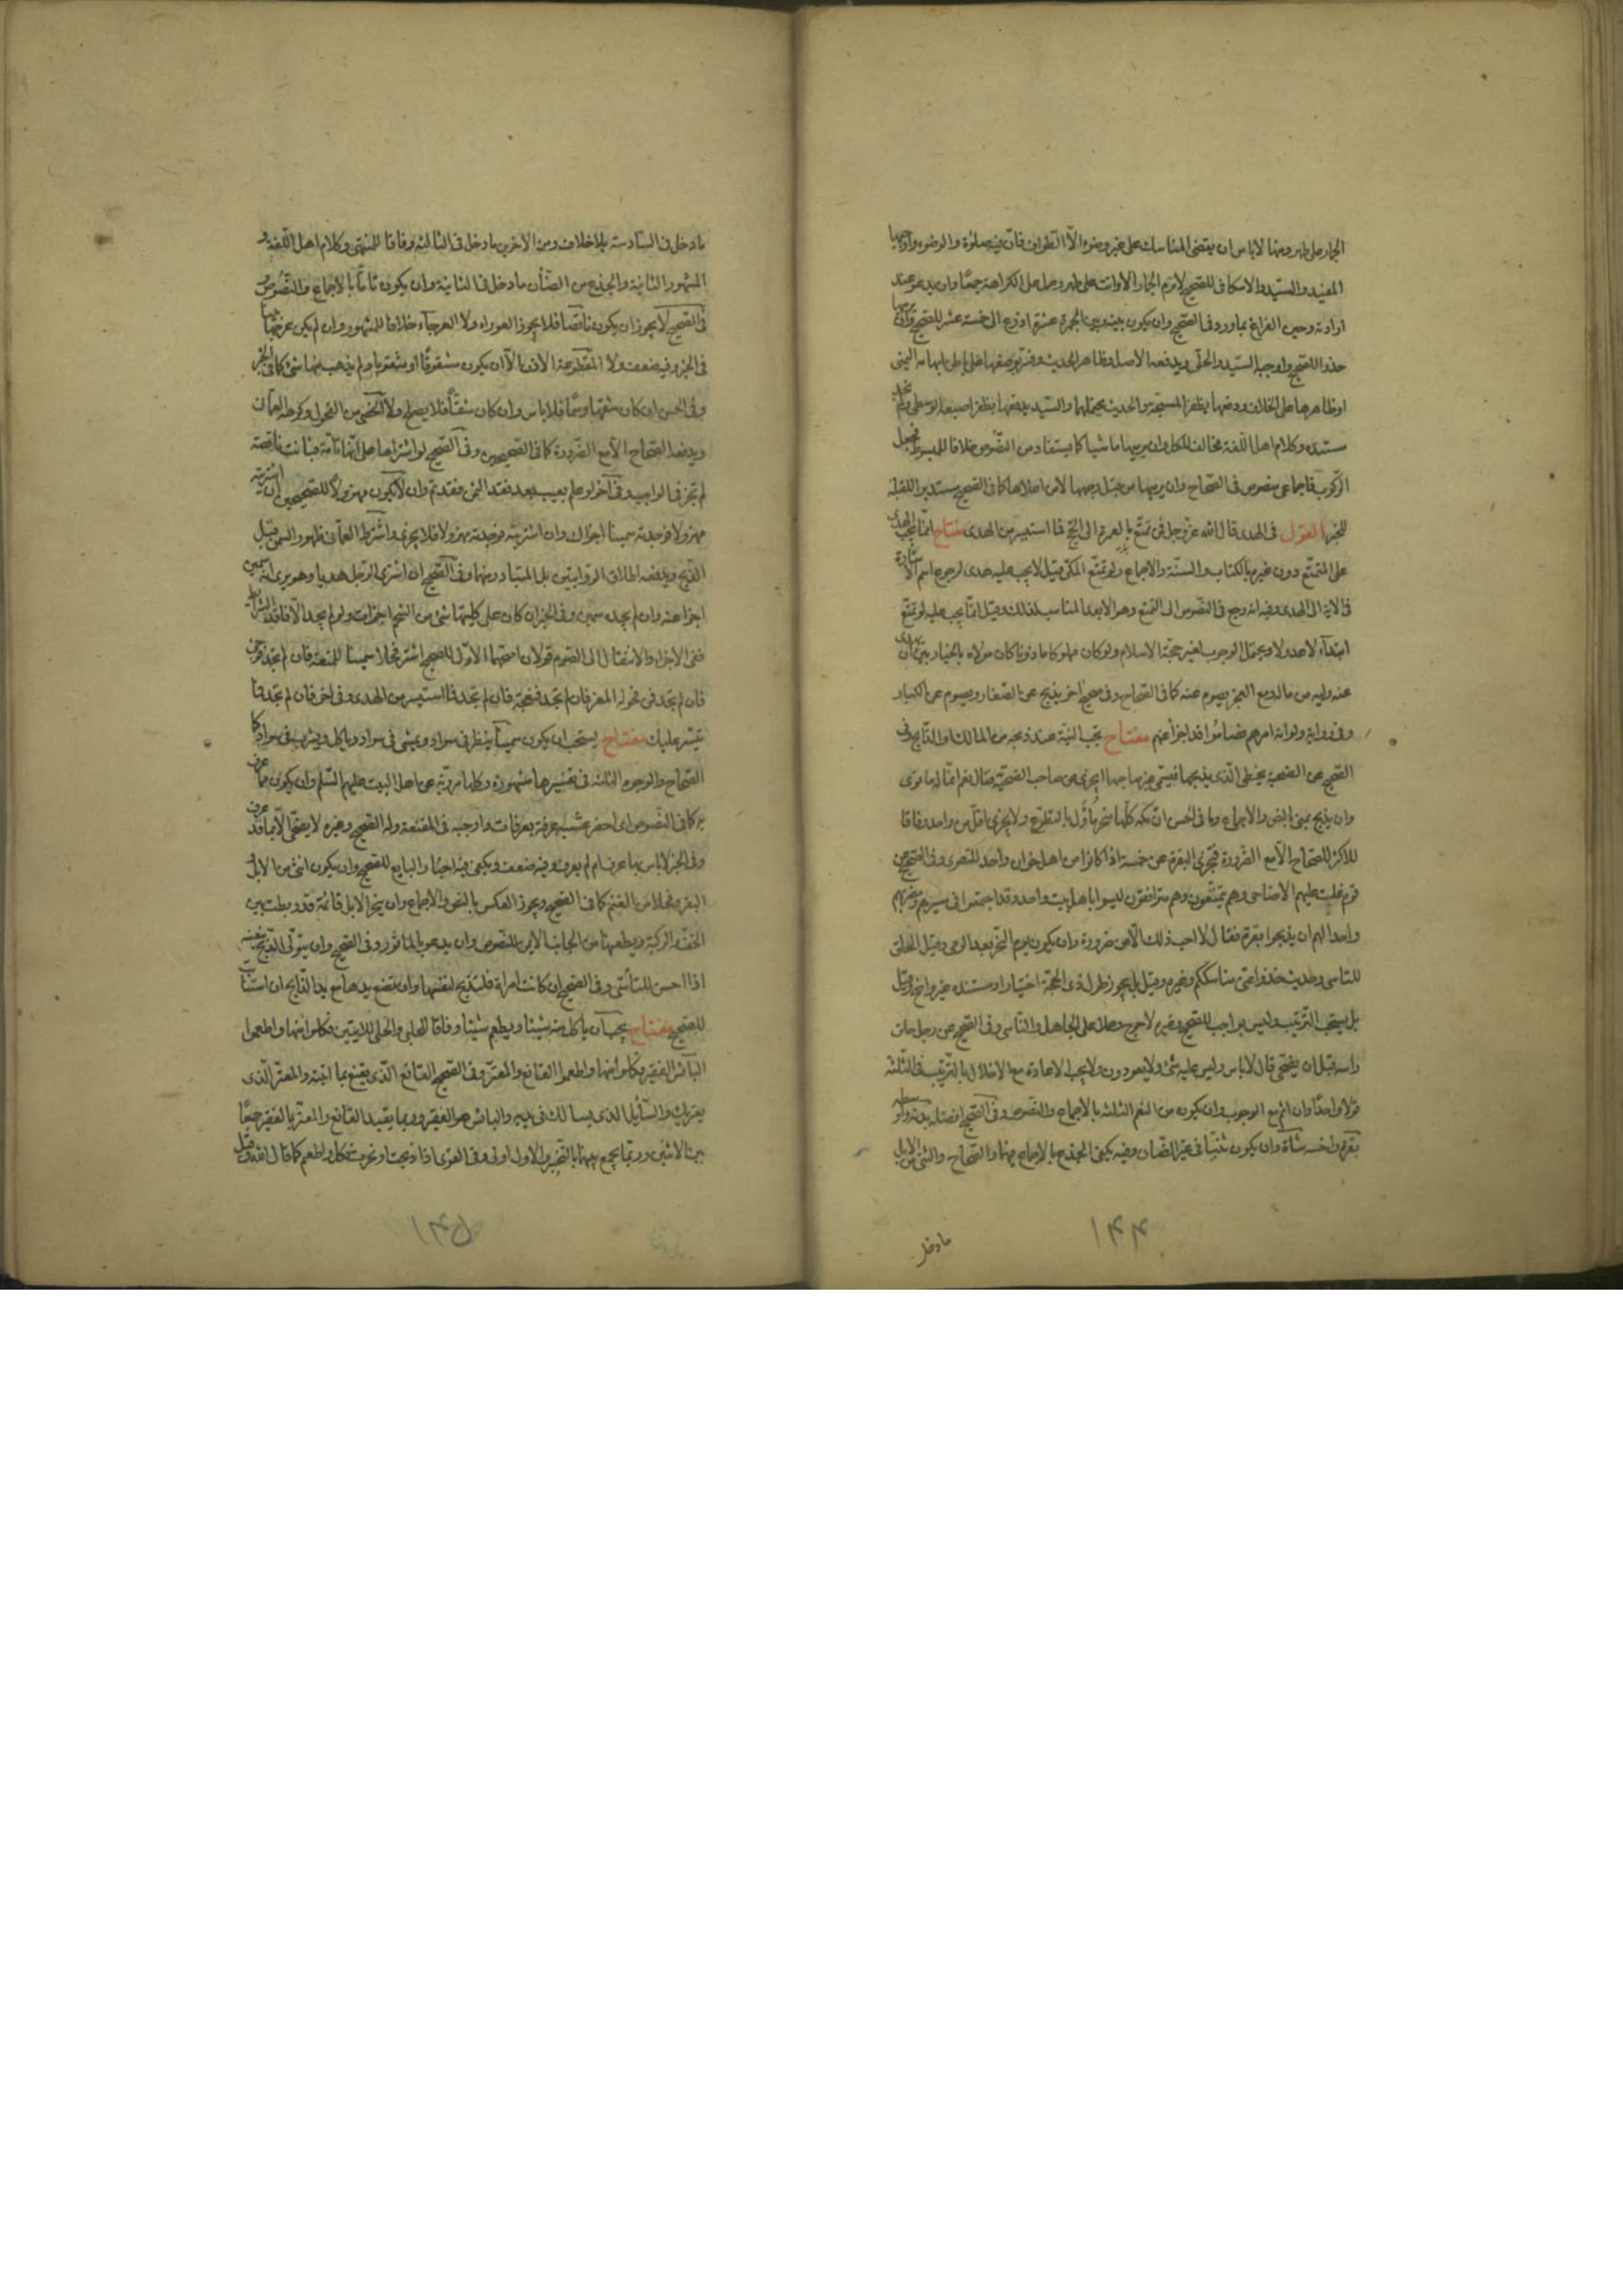 الجمار على طهر ومنها لا باس ان يقضى المناسك على غير وضوء الا الطواف فان فيه صلوة والوضوء واوجبها
المفيد والسيد والاسكافى للصحيح لا ترم الجمار الا وانت على طهر وحمل على الكراهة جمعا وان يدعو عند
ارادته وحين الفراغ بما ورد فى الصحيح وان يكون بينه وبين الجمرة عشرة اذرع الى خمسة عشر للصحيح وان يرميها
خذفا للصحيح واوجبه السيد والحلى ويدفعه الاصل وظاهر الحديث وفسر بوضعها على باطن ابهامه اليمنى
او ظاهرها على الخلاف ودفعها بظفر المسبحة والحديث يحتملهما والسيد يدفعها بظفر اصبعه الوسطى ولم نجد
مستنده وكلام اهل اللغة مخالف للكل وان يرميها ماشيا كما يستفاد من النصوص خلافا للمبسوط فجعل
الركوب فاجماعى منصوص فى الصحاح وان يرميها من قبل وجهها لا من اعلاها كما فى الصحيح مستدبر القبلة
للخبر القول فى الهدى قال الله عز وجل فمن تمتع بالعمرة الى الحج فما استيسر من الهدى مفتاح انما يجب الهدى
على المتمتع دون غيره بالكتاب والسنة والاجماع ولو تمتع المكى قيل لا يجب عليه هدى لرجوع اسم الاشارة
فى الاية الى الهدى وفيه انه رجع فى النصوص الى التمتع وهو الابعد المناسب لذلك وقيل انما يجب عليه لو تمتع
ابتداء لا عدولا ويحتمل الوجوب لغير حجة الاسلام ولو كان مملوكا ماذونا كان مولاه بالخيار بين ان يهدى
عنه وليه من ماله ومع العجز يصوم عنه كما فى الصحاح وفى صحيح اخر يذبح عن الصغار ويصوم عن الكبار
وفى رواية ولو انه امرهم فصاموا قد اجزا عنهم مفتاح يجب النية عند ذبحه من المالك او الذابح وفى
الصحيح عن الضحية يخطى الذى يذبحها فيسمى غير صاحبها ايجزى عن صاحب الضحية فقال نعم انما له ما نوى
وان يذبح بمنى بالنص والاجماع وما فى الحسن ان مكة كلها منحر ماول بالتطوع ولا يجزى اقل من واحد وفاقا
للاكثر للصحاح الا مع الضرورة فتجزى البقرة عن خمسة اذا كانوا من اهل خوان واحد للنصوص وفى الصحيح عن
قوم غلت عليهم الاضاحى وهم متمتعون وهم مترافقون ليسوا باهل بيت واحد وقد اجتمعوا فى مسيرهم ومضربهم
واحد الهم ان يذبحوا بقرة فقال لا احب ذلك الا من ضرورة وان يكون يوم النحر بعد الرمى وقبل الحلق
للتاسى وحديث خذوا عنى مناسككم وغيره وقيل بل يجوز طول ذى الحجة اختيارا ومستنده غير واضح وقيل
بل يستحب الترتيب وليس بواجب للصحيح وغيره لا حرج وحملا على الجاهل والناسى وفى الصحيح عن رجل حلق
راسه قبل ان يضحى قال لا باس وليس عليه شئ ولا يعودن ولا يجب الاعادة مع الاخلال بالترتيب فى الثلثة
قولا واحدا وان اثم مع الوجوب وان يكون من النعم الثلثة بالاجماع والنصوص وفى الصحيح افضله بدنة واوسطه
بقرة واخسه شاة وان يكون ثنيا فى غير الضان وفيه يكفى الجذع بالاجماع فيهما والصحاح والثنى من الابل
ما دخل
۱۴۴
ما دخل فى السادسة بلا خلاف ومن الاخرين ما دخل فى الثالثة وفاقا للمنتهى وكلام اهل اللغة و
المشهور الثانية والجذع من الضأن ما دخل فى الثانية وان يكون تاما بالاجماع والنصوص
فى الصحيح لا يجوز ان يكون ناقصا فلا يجوز العوراء ولا العرجاء خلافا للمشهور وان لم يكن عرجها بينا
فى الخبر وفيه ضعف ولا المقطوعة الاذن الا ان يكون مشقوقا او مثقوبا ولم يذهب منها شئ كما فى الخبر
وفى الحسن ان كان شقها وسما فلا باس وان كان شقا فلا يصلح ولا الخصى من الفحول وكرهه العمانى
ويدفعه الصحاح الا مع الضرورة كما فى الصحيحين وفى الصحيح لو اشتراها على انها تامة فبانت ناقصة
لم تجز فى الواجب وفى اخر لو علم بعيب بعد نقد الثمن فقد تم وان لا يكون مهزولا للصحيحين ان اشتريته
مهزولا فوجدته سمينا اجزاك وان اشتريته فوجدته مهزولا فلا يجزى واشترط العمانى ظهور السمن قبل
الذبح ويدفعه اطلاق الروايتين بل المتبادر منها وفى الصحيح ان اشترى الرجل هديا وهو يرى انه سمين
اجزا عنه وان لم يجده سمين وفى الخبر ان كان على كليتيها شئ من الشحم اجزات ولو لم يجد الا فاقد الشرايط
ففى الاجزاء والانتقال الى الصوم قولان اصحهما الاول للصحيح اشتر فحلا سمينا للمتعة فان لم تجد فموجوء
فان لم تجد فمن فحولة المعز فان لم تجد فنعجة فان لم تجد فما استيسر من الهدى وفى اخر فان لم تجد فما
تيسر عليك مفتاح يستحب ان يكون سمينا ينظر فى سواد ويمشى فى سواد وياكل ويشرب فى سواد كما فى
الصحاح والوجوه الثلثة فى تفسيرها مشهورة وكلها مروية عن اهل البيت عليهم السلم وان يكون مما عرف
به كما فى النصوص اى احضر عشية عرفة بعرفات واوجبه فى المقنعة وله الصحيح وغيره لا يضحى الا بما قد عرف
وفى الخبر لا باس بها عرف ام لم يعرف وفيه ضعف ويكفى فيه اخبار البايع للصحيح وان يكون انثى من الابل و
البقر وفحلا من الغنم كما فى الصحيح ويجوز العكس بالنص والاجماع وان ينحر الابل قائمة قد ربطت بين
الخف والركبة ويطعنها من الجانب الايمن للنصوص وان يدعو بالماثور وفى الصحيح وان يتولى الذبح بنفسه
اذا احسن للتأسى وفى الصحيح ان كانت امراة فلتذبح لنفسها وان تضع يدها مع يد الذابح ان استناب
للصحيح مفتاح يجب ان ياكل منه شيئا ويطعم شيئا وفاقا للحلبى والحلى للايتين فكلوا منها واطعموا
البائس الفقير فكلوا منها واطعموا القانع والمعتر وفى الصحيح القانع الذى يقنع بما اعطيته والمعتر الذى
يعتريك والسائل الذى يسالك فى يديه والبائس هو الفقير وربما يقيد القانع والمعتر بالفقير جمعا
بين الاثنين وربما يجمع بينهما بالتخيير والاول اولى وفى القوى اذا ذبحت او نحرت فكل واطعم كما قال الله وقيل